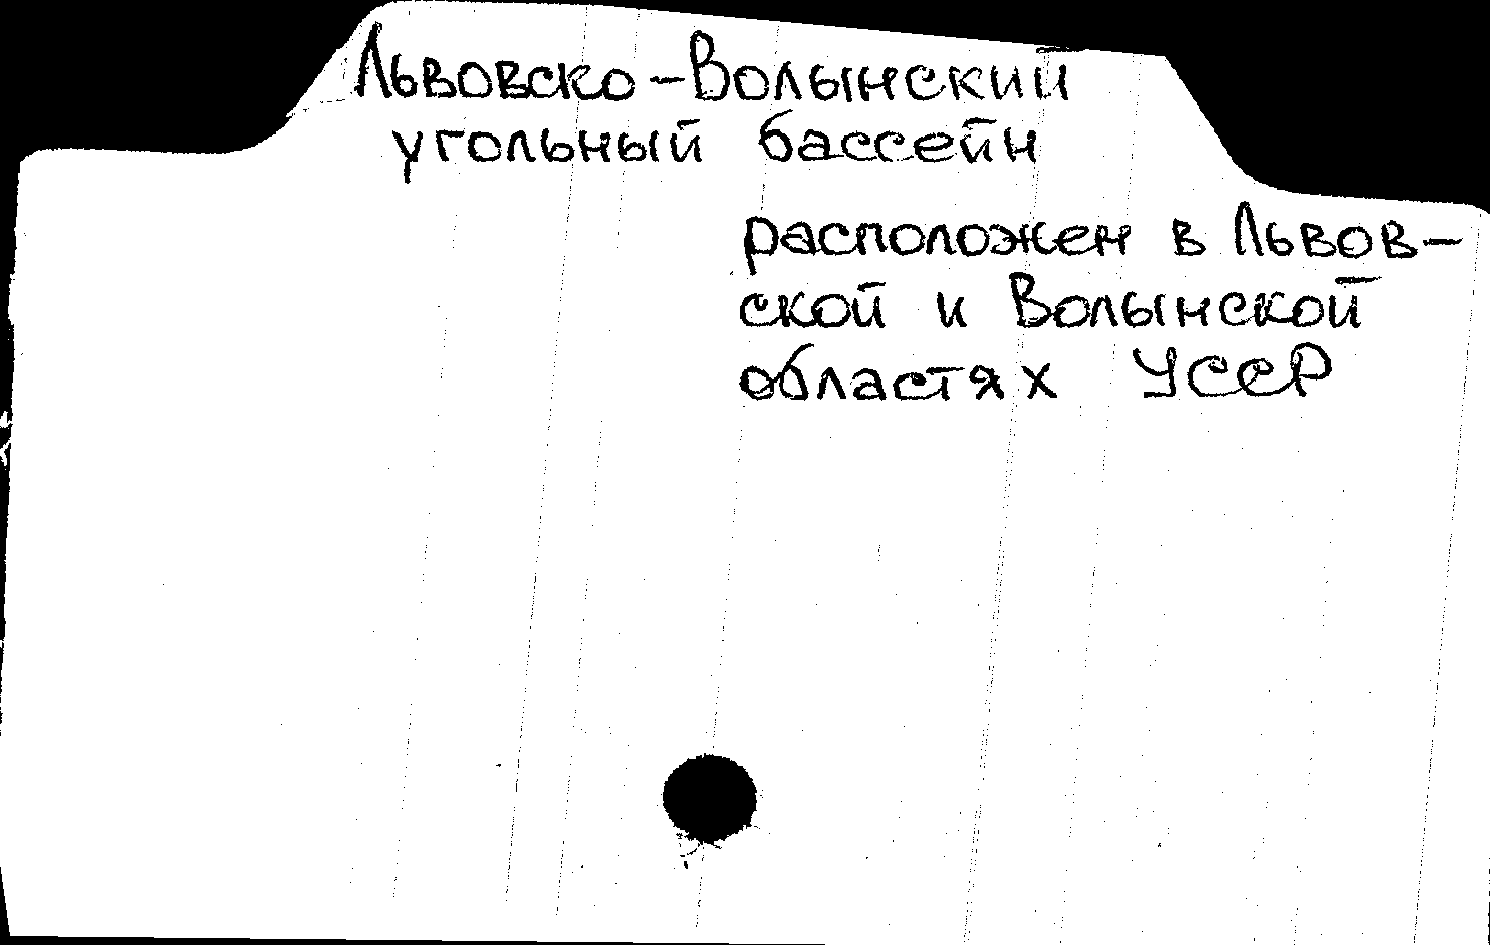 Львовско-Волынский
угольный бассейн
расположен в Львов-
ской и Волынской
областях УССР